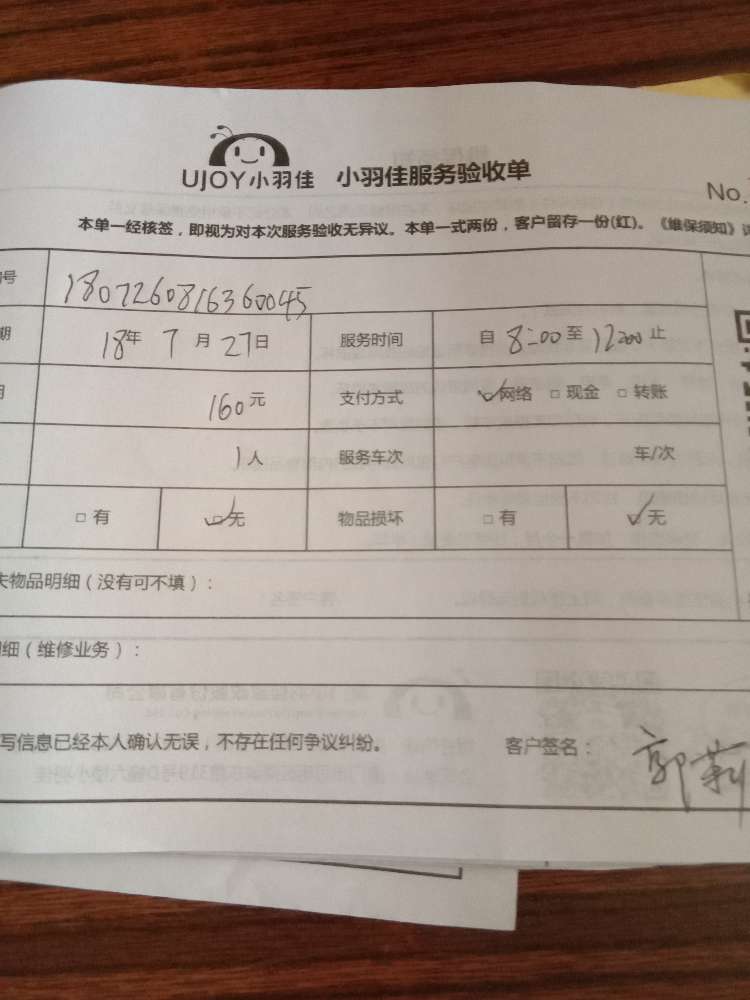 UJOY小羽佳 小羽佳服务验收单
No.
本单一经核签，即视为对本次服务验收无异议。本单一式两份，客户留存一份(红)。《维保须知》
号 1807260816360045
期 18年 7 月 27日 服务时间 自 8:00 至 12:00 止
160元 支付方式 网络 □ 现金 □ 转账
1人 服务车次 车/次
□ 有 □ 无 物品损坏 □ 有 □ 无
失物品明细（没有可不填）：
细（维修业务）：
写信息已经本人确认无误，不存在任何争议纠纷。 客户签名： 郭莉